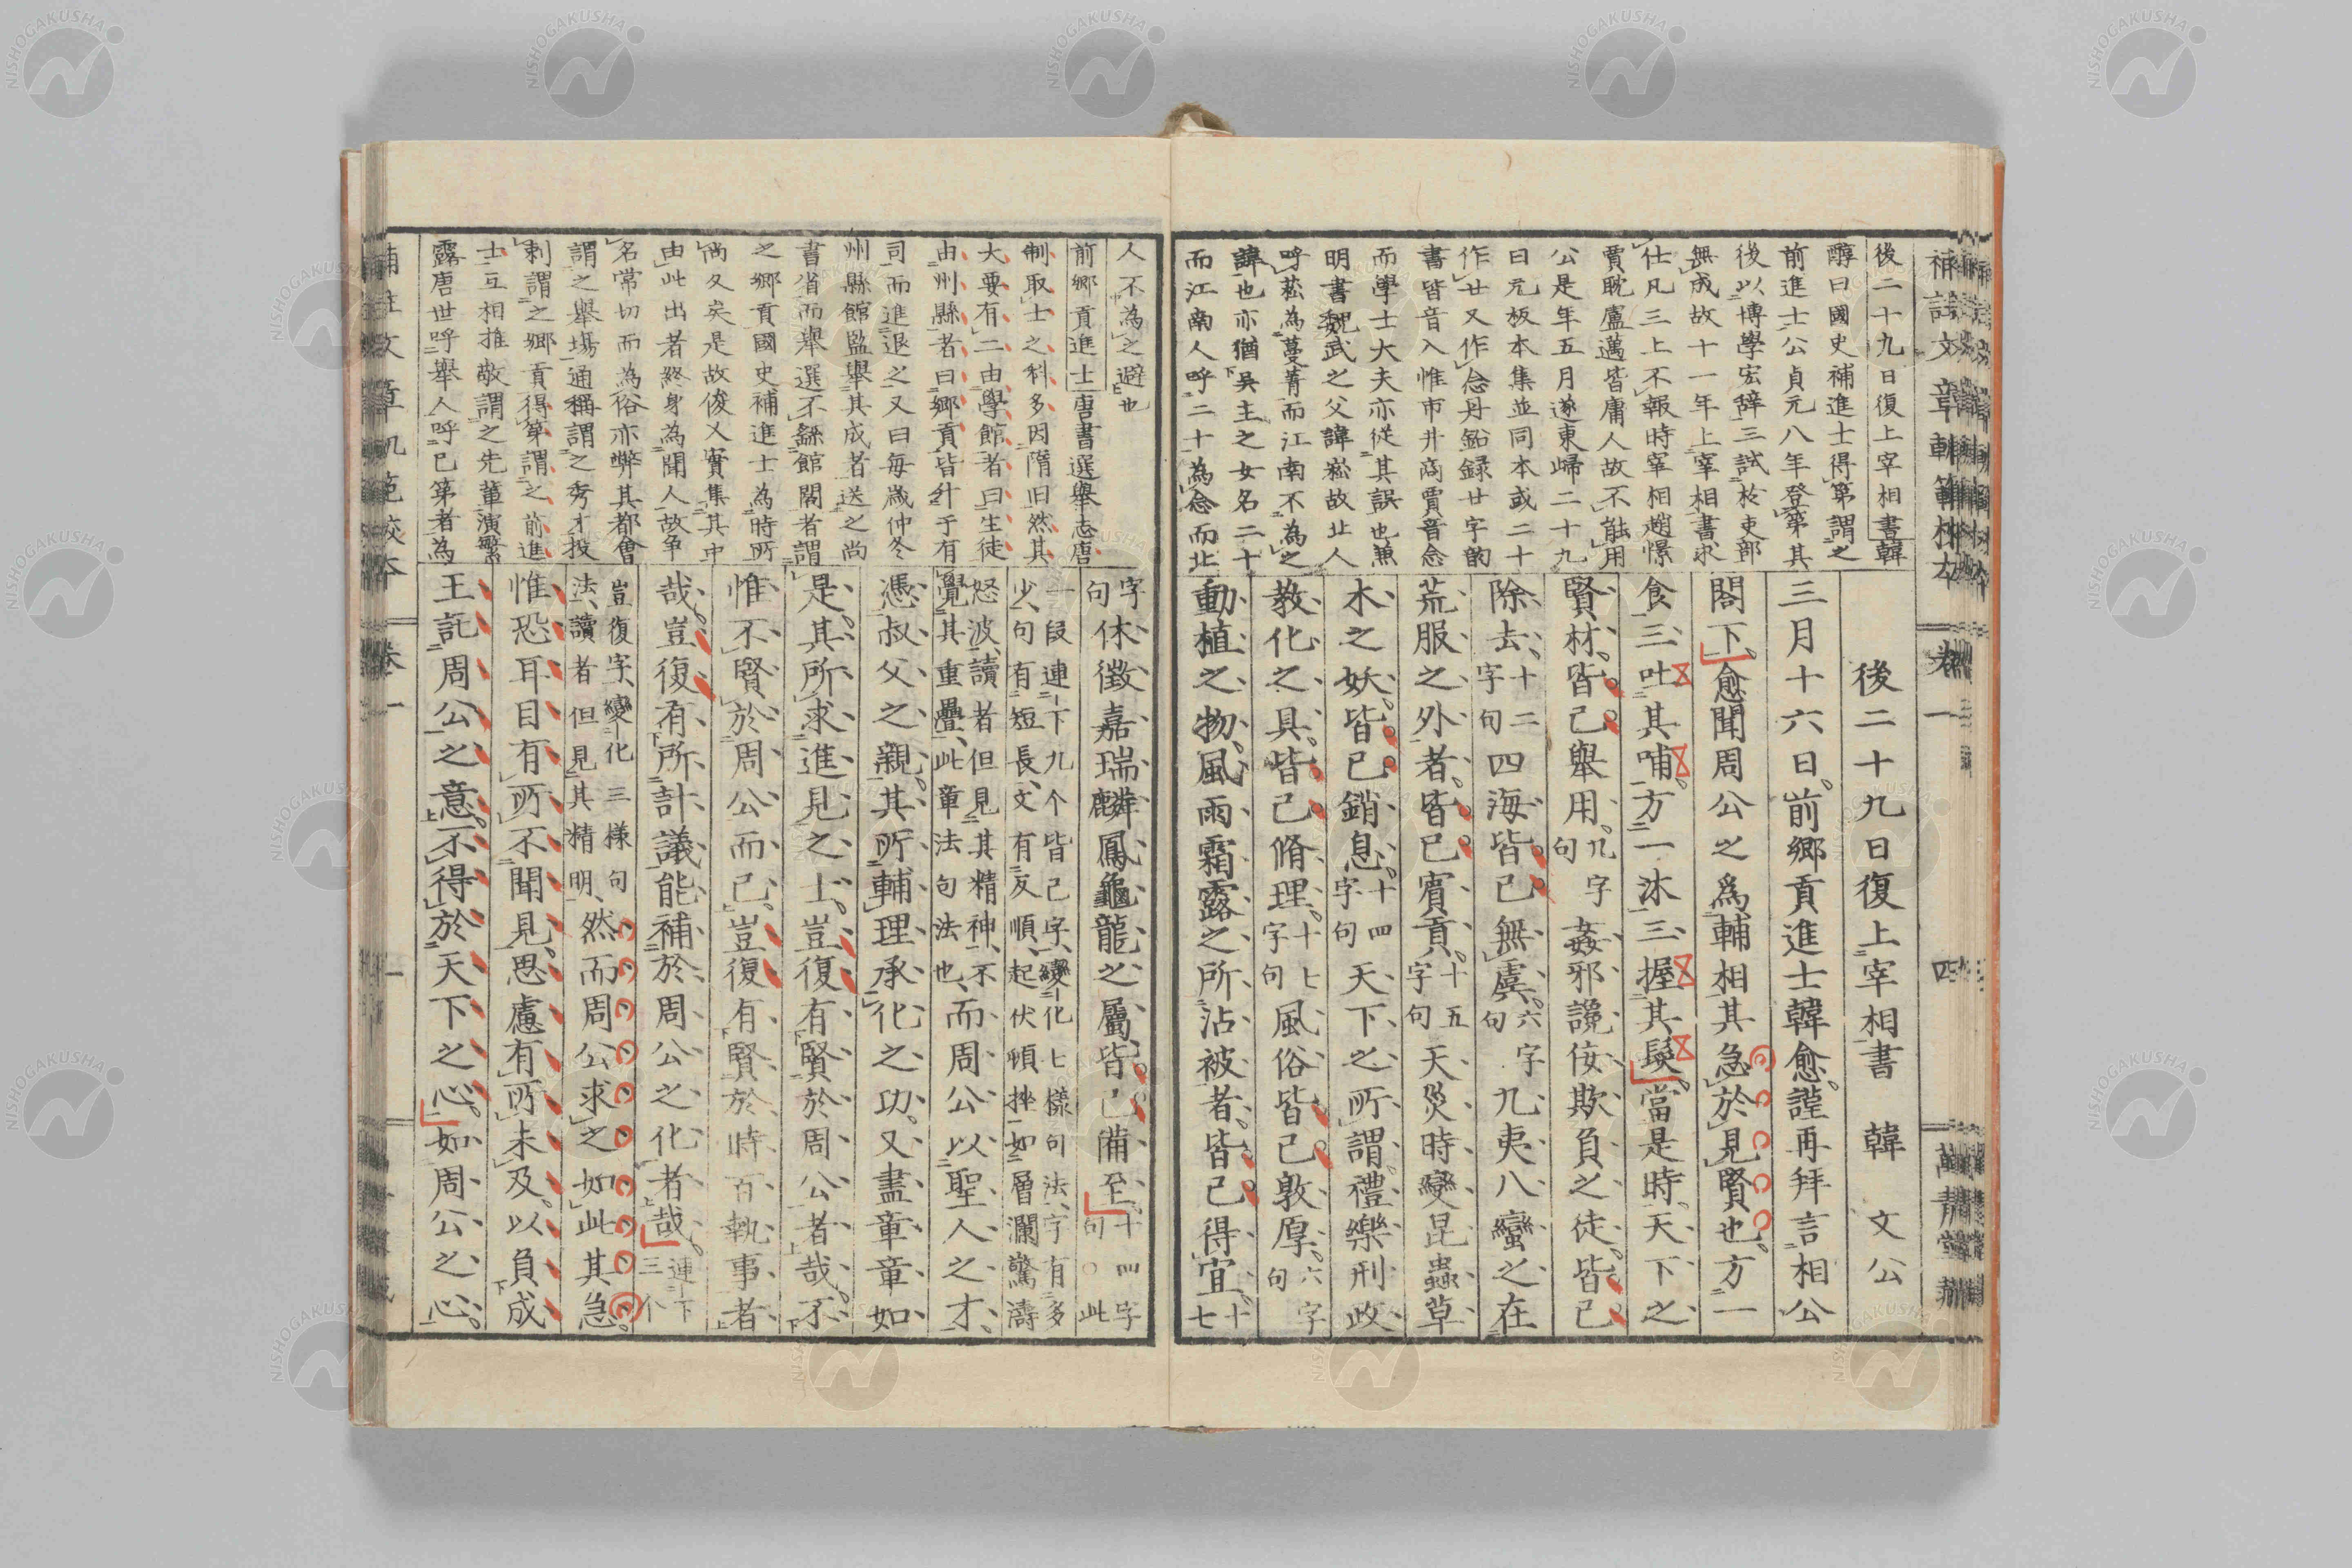 補註文章軌範校本 卷一 四
後二十九日復上宰相書韓
醇曰國史補進士得第謂之
前進士公貞元八年登第其
後以博學宏辭三試於吏部
無成故十一年上宰相書求
仕凡三上不報時宰相趙憬
賈耽盧邁皆庸人故不能用
公是年五月遂東歸二十九
曰元板本集並同本或二十
作廿又作念丹鉛録廿字韵
書皆音入惟市井商賈音念
而學士大夫亦從其誤也兼
明書魏武之父諱崧故北人
呼菘為蔓菁而江南不為之
諱也亦猶吳主之女名二十
而江南人呼二十為念而北
後二十九日復上宰相書 韓文公
三月十六日前鄉貢進士韓愈謹再拜言相公
閣下愈聞周公之爲輔相其急於見賢也方一
食三吐其哺方一沐三握其髮當是時天下之
賢材皆已舉用九字句姦邪讒佞欺負之徒皆已
除去十二字句四海皆已無虞六字句九夷八蠻之在
荒服之外者皆已賓貢十五字句天災時變昆蟲草
木之妖皆已銷息十四字句天下之所謂禮樂刑政
教化之具皆已脩理十七字句風俗皆已敦厚六字句
動植之物風雨霜露之所沾被者皆已得宜十七
人不為之避也
前鄉貢進士唐書選舉志唐
制取士之科多因隋旧然其
大要有二由學館者曰生徒
由州縣者曰鄉貢皆升于有
司而進退之又曰每歲仲冬
州縣館監舉其成者送之尚
書省而舉選不繇館閣者謂
之鄉貢國史補進士為時所
尚久矣是故俊乂實集其中
由此出者終身為聞人故争
名常切而為俗亦弊其都會
謂之舉塲通稱謂之秀才投
刺謂之鄉貢得第謂之前進
士互相推敬謂之先輩演繁
露唐世呼舉人呼已第者為
字句休徵嘉瑞麟鳳龜龍之屬皆已備至十四字句○此
一段連下九个皆已字變化七樣句法字有多
少句有短長文有反順起伏頓挫如層瀾驚濤
怒波讀者但見其精神不
覺其重疊此章法句法也而周公以聖人之才
憑叔父之親其所輔理承化之功又盡章章如
是其所求進見之士豈復有賢於周公者哉不
惟不賢於周公而已豈復有賢於時百執事者
哉豈復有所計議能補於周公之化者哉連下三个
豈復字變化三樣句
法讀者但見其精明然而周公求之如此其急
惟恐耳目有所不聞見思慮有所未及以負成
王託周公之意不得於天下之心如周公之心
卷一
NISHOGAKUSHA